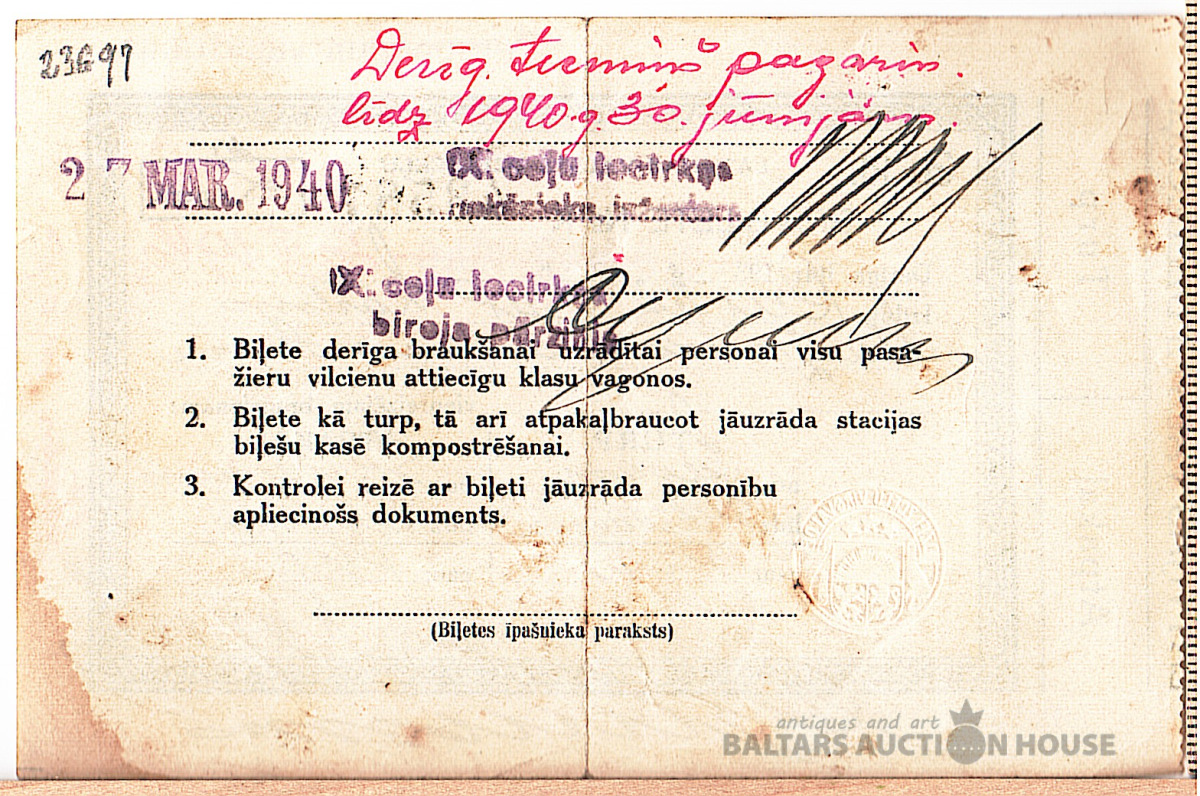 23697
Derīg. termiņš pagarin.
līdz 1940.g. 30. jūnijam.
27 MAR. 1940
IX. ceļu iecirkņa
priekšnieks, inženieris
IX. ceļu iecirkņa
biroja pārzinis
1. Biļete derīga braukšanai uzrādītai personai visu pasa-
žieru vilcienu attiecīgu klasu vagonos.
2. Biļete kā turp, tā arī atpakaļbraucot jāuzrāda stacijas
biļešu kasē kompostrēšanai.
3. Kontrolei reizē ar biļeti jāuzrāda personību
apliecinošs dokuments.
(Biļetes īpašnieka paraksts)
antiques and art
BALTARS AUCTION HOUSE